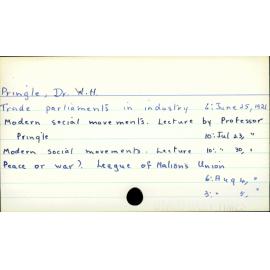 Pringle, Dr. W.H.
Trade parliaments in industry 6: June 25, 1921
Modern social movements. Lecture by Professor
Pringle 10: Jul 23, "
Modern social movements. Lecture 10: " 30, "
Peace or war?. League of Nations Union
6: Aug 4, "
3: " 5, "